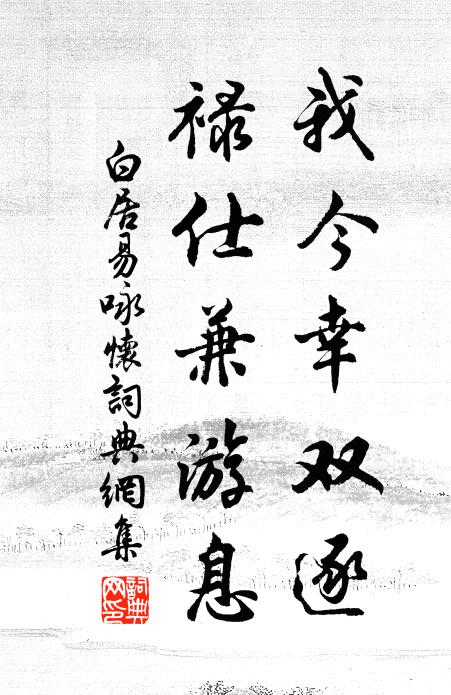 我今幸双逐
禄仕兼游息
白居易咏懷詞典網集
詞典网印